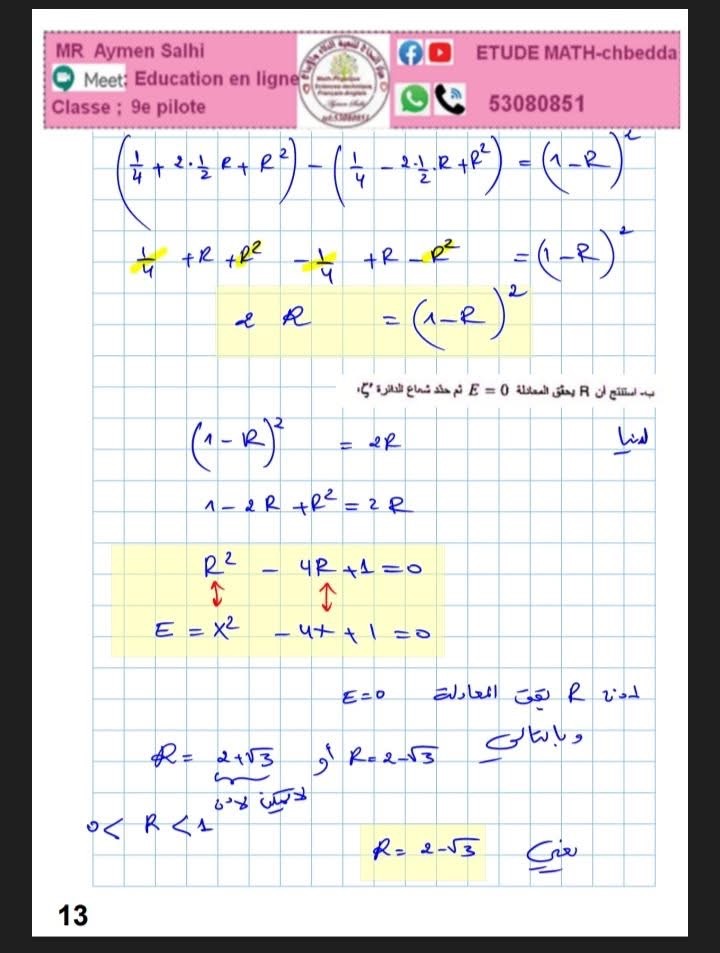 MR Aymen Salhi
Meet: Education en ligne
Classe ; 9e pilote
ETUDE MATH-chbedda
53080851
(1/4 + 2·1/2 R + R²) - (1/4 - 2·1/2·R + R²) = (1-R)²
1/4 + R + R² - 1/4 + R - R² = (1-R)²
2 R = (1-R)²
ب- استنتج أن R يحقق المعادلة E = 0 ثم حدد شعاع الدائرة ζ'.
لدينا
(1-R)² = 2R
1 - 2R + R² = 2R
R² - 4R + 1 = 0
E = x² - 4x + 1 = 0
R يحقق المعادلة E=0
وبالتالي
R = 2-√3 أو R = 2+√3
لا يمكن لان
0 < R < 1
يعني R = 2-√3
13